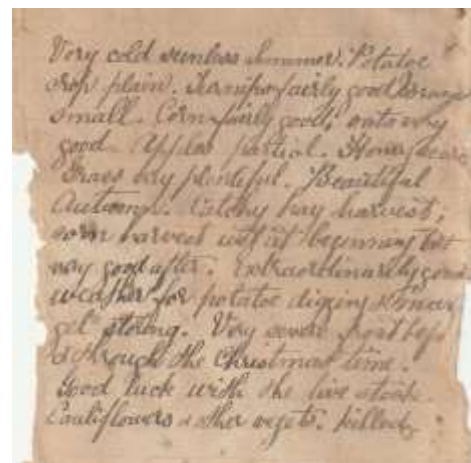 Very cold sunless Summer. Potatoe
crop plain. Turnips fairly good
small. Corn fairly good, oats very
good. Apples partial. Honey scarce
Grass very plentiful. Beautiful
Autumn. Catchy hay harvest,
corn harvest wet at beginning but
very good after. Extraordinarily good
weather for potatoe digging &
get storing. Very severe frost
& through the Christmas time.
Good luck with the live stock.
Cauliflowers & other vegets. killed